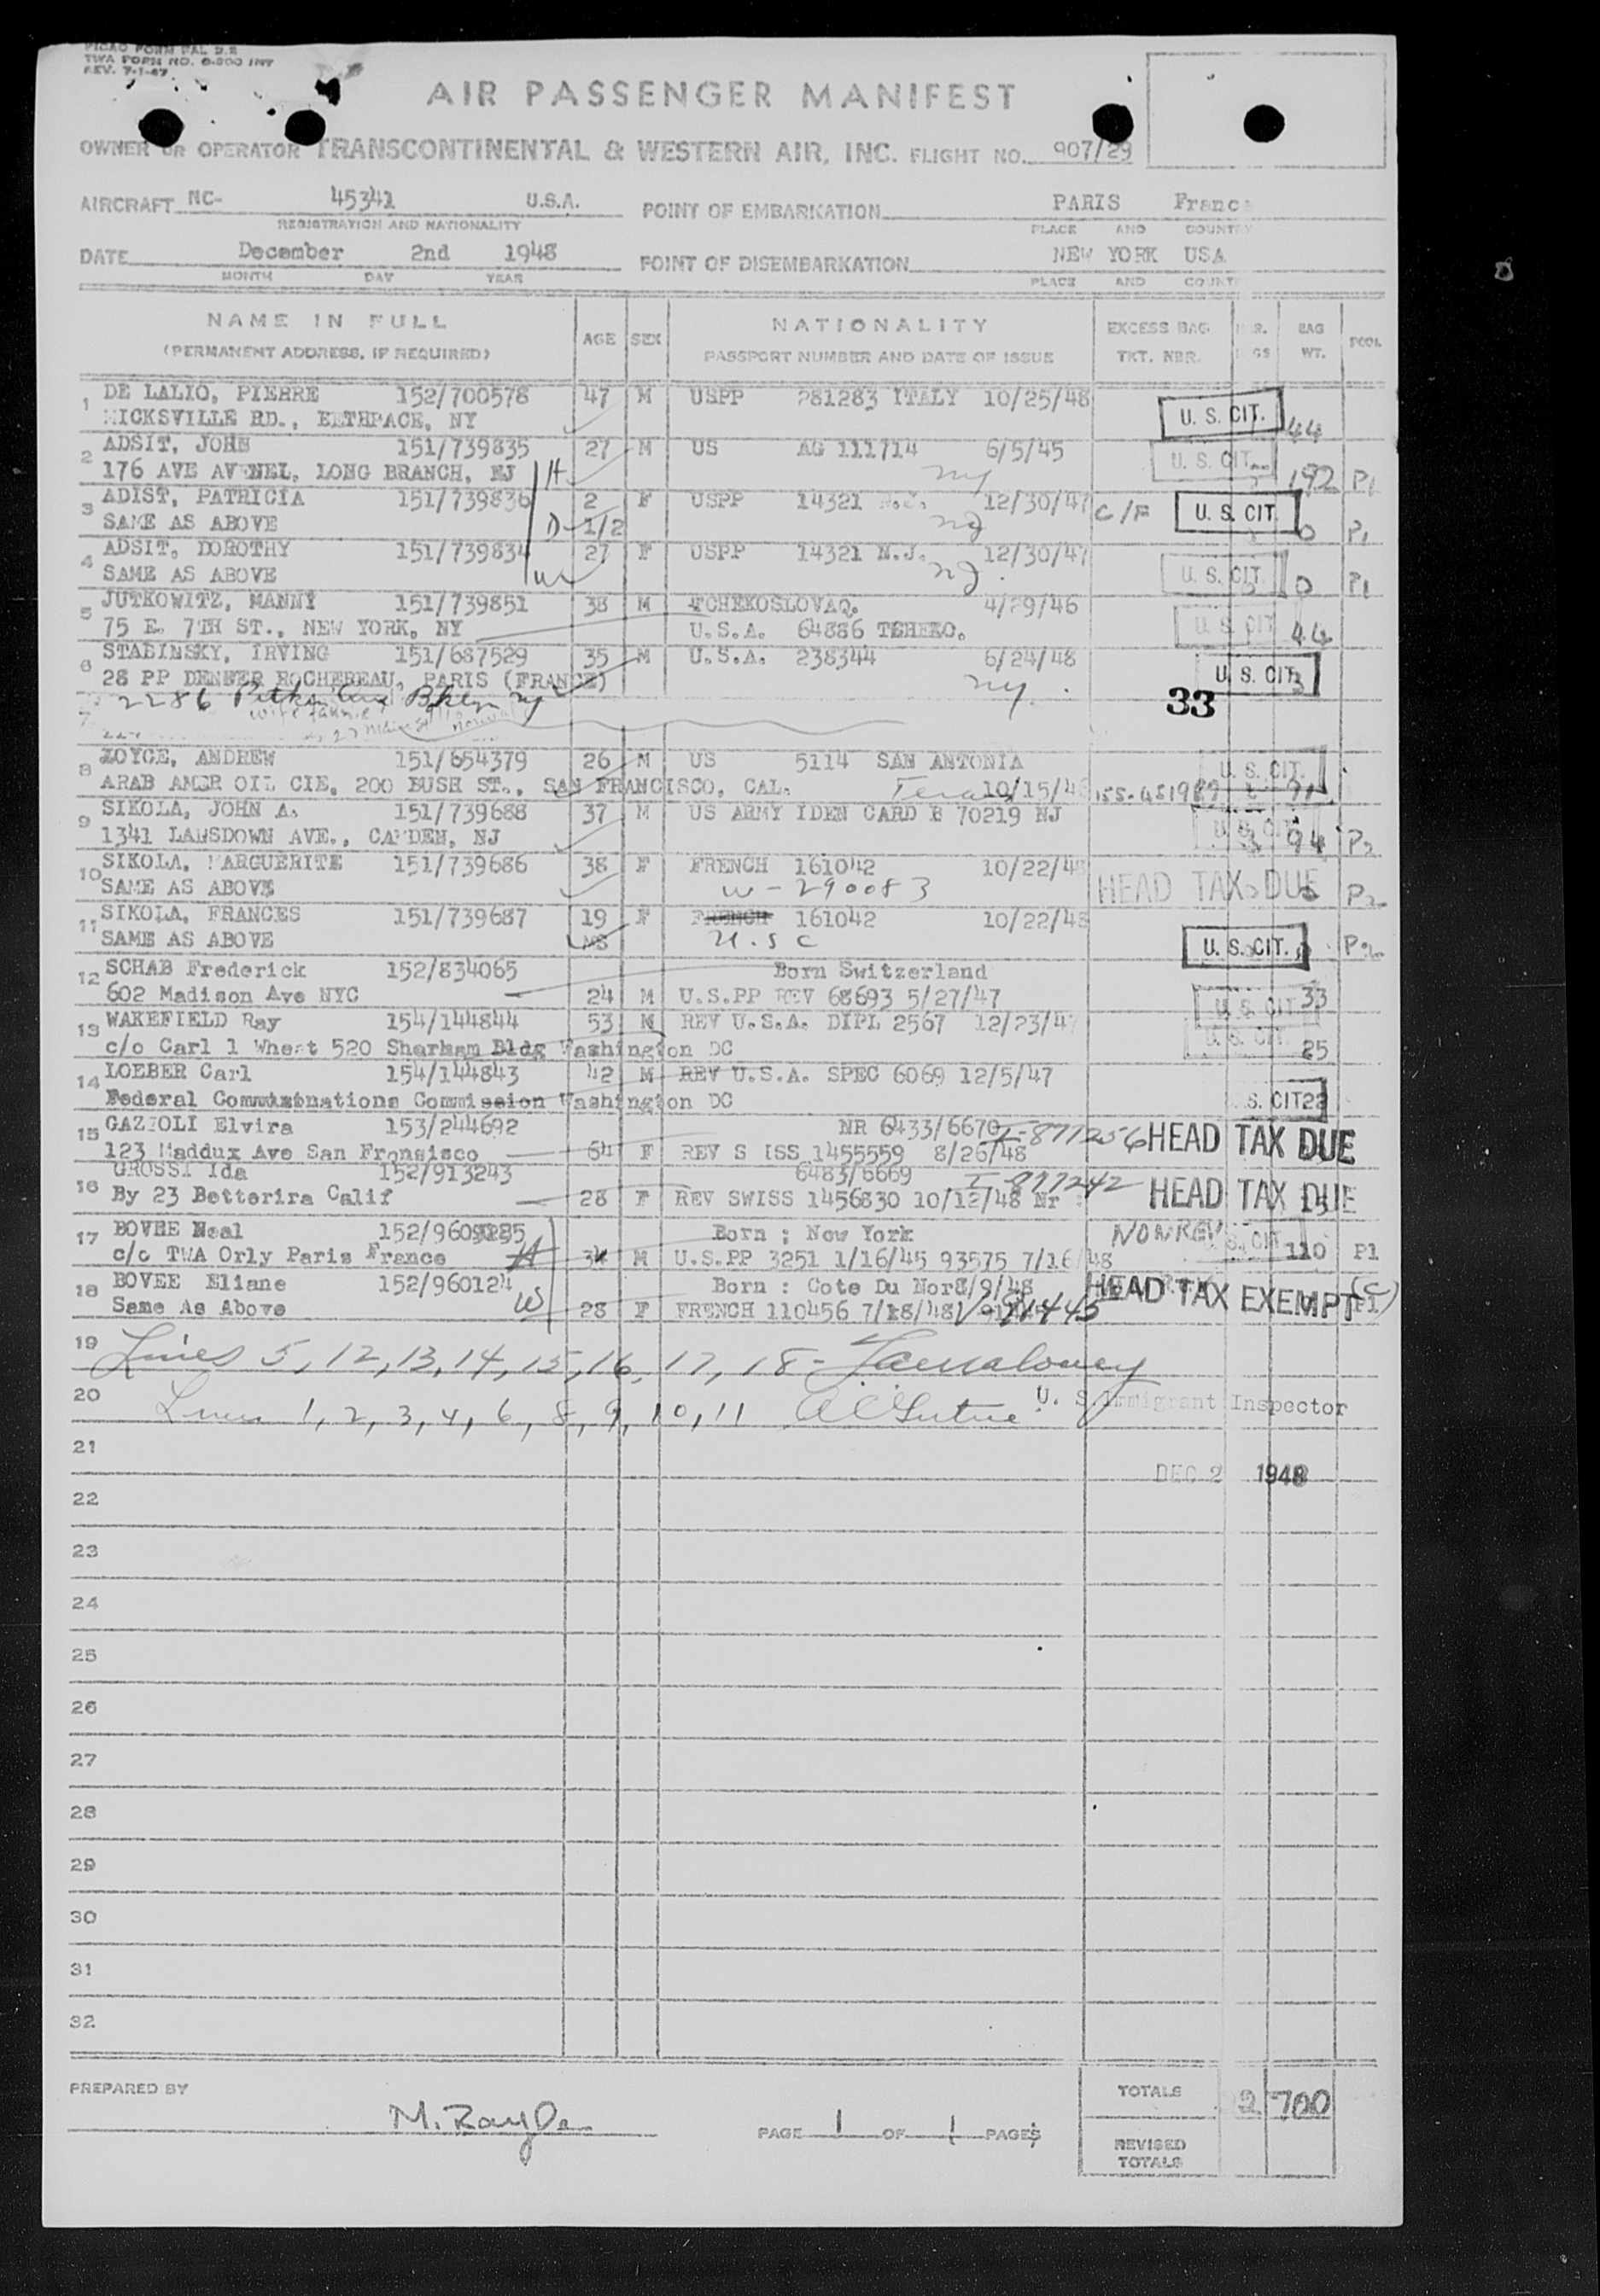 PICAO FORM PAL 2.2
TWA FORM NO. 0-800 INT
REV. 7-1-47
AIR PASSENGER MANIFEST
OWNER OR OPERATOR TRANSCONTINENTAL & WESTERN AIR, INC. FLIGHT NO. 907/29
AIRCRAFT NC- 45341 U.S.A. POINT OF EMBARKATION PARIS France
REGISTRATION AND NATIONALITY PLACE AND COUNTRY
DATE December 2nd 1948 POINT OF DISEMBARKATION NEW YORK USA
MONTH DAY YEAR PLACE AND COUNT
NAME IN FULL AGE SEX NATIONALITY EXCESS BAG BAG POOL
(PERMANENT ADDRESS, IF REQUIRED) PASSPORT NUMBER AND DATE OF ISSUE TKT. NBR. WT.
1 DE LALIO, PIERRE 152/700578 47 M USPP 281283 ITALY 10/25/48 U. S. CIT.
HICKSVILLE RD., BETHPACE, NY 44
2 ADSIT, JOHN 151/739835 27 M US AG 111714 6/5/45 U. S. CIT.
176 AVE AVENEL, LONG BRANCH, NJ H NY 192 P1
3 ADIST, PATRICIA 151/739836 2 F USPP 14321 N.J. 12/30/47 C/F U. S. CIT.
SAME AS ABOVE D 1/2 NJ 0 P1
4 ADSIT, DOROTHY 151/739834 27 F USPP 14321 N.J. 12/30/47 U. S. CIT.
SAME AS ABOVE W NJ. 0 P1
5 JUTKOWITZ, MANNY 151/739851 38 M TCHEKOSLOVAQ. 4/29/46 U. S. CIT
75 E. 7TH ST., NEW YORK, NY U.S.A. 64886 TEHEKO. 44
6 STABINSKY, IRVING 151/687529 35 M U.S.A. 238344 6/24/48 U. S. CIT.
28 PP DENFER ROCHEREAU, PARIS (FRANCE) NY.
2286 Pitkin Ave Bklyn NY 33
7
8 ZOYCE, ANDREW 151/654379 26 M US 5114 SAN ANTONIA U. S. CIT.
ARAB AMER OIL CIE, 200 BUSH ST., SAN FRANCISCO, CAL. Texas 10/15/4 91
9 SIKOLA, JOHN A. 151/739688 37 M US ARMY IDEN CARD B 70219 NJ U. S. CIT
1341 LANSDOWN AVE., CAMDEN, NJ 94 P2
10 SIKOLA, MARGUERITE 151/739686 38 F FRENCH 161042 10/22/48 HEAD TAX DUE
SAME AS ABOVE W-290083 P2
11 SIKOLA, FRANCES 151/739687 19 F FRENCH 161042 10/22/48
SAME AS ABOVE U.S C U. S. CIT. P2
12 SCHAB Frederick 152/834065 Born Switzerland
602 Madison Ave NYC 24 M U.S.PP REV 68693 5/27/47 U. S. CIT 33
13 WAKEFIELD Ray 154/144844 53 M REV U.S.A. DIPL 2567 12/23/47 U. S. CIT.
c/o Carl l Wheat 520 Sharham Bldg Washington DC 25
14 LOEBER Carl 154/144843 42 M REV U.S.A. SPEC 6069 12/5/47
Federal Communications Commission Washington DC S. CIT 22
15 GAZZOLI Elvira 153/244692 NR 6433/6670 I-877256 HEAD TAX DUE
123 Maddux Ave San Fronsisco 64 F REV S ISS 1455559 8/26/48
GROSSI Ida 152/913243 6483/6669 I-877242
16 By 23 Betterira Calif 28 F REV SWISS 1456830 10/12/48 Nr HEAD TAX DUE
17 BOVEE Neal 152/960 Born : New York NONREV U. S. CIT
c/o TWA Orly Paris France H 34 M U.S.PP 3251 1/16/45 93575 7/16/48 110 P1
18 BOVEE Eliane 152/960124 Born : Cote Du Nord 8/9/48 HEAD TAX EXEMPT
Same As Above W 28 F FRENCH 110456 7/18/48 P1
19 Lines 5, 12, 13, 14, 15, 16, 17, 18 -
20 Lines 1, 2, 3, 4, 6, 8, 9, 10, 11 U. S. Immigrant Inspector
21
DEC 2 1948
22
23
24
25
26
27
28
29
30
31
32
PREPARED BY TOTALS 700
PAGE 1 OF 1 PAGES
REVISED TOTALS